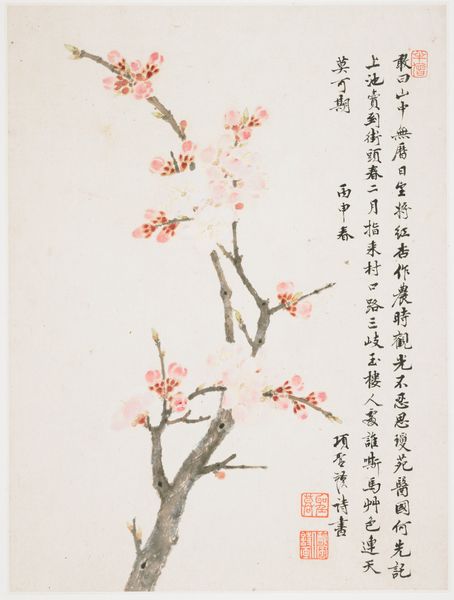 敢曰山中無曆日坐將紅杏作農時觀光不忍思瓊苑醫國何先託
上池賣到街頭春二月指來村口路三岐玉樓人誰嘶馬艸色連天
莫可期
丙申春
項聖謨詩畫